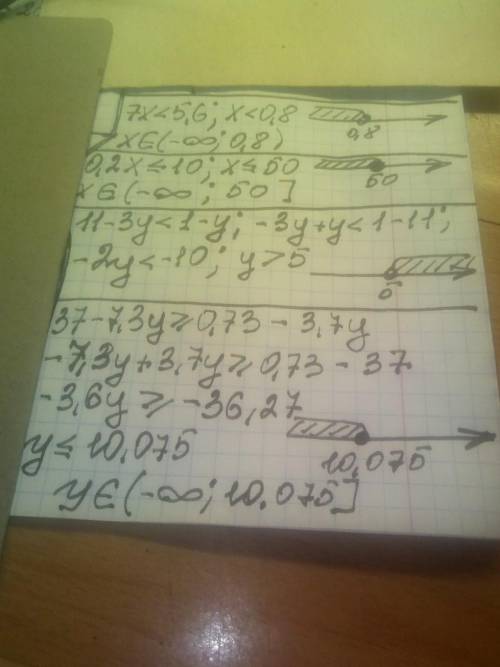 7x<5,6; x<0,8
0,8
x∈(-∞; 0,8)
0,2x≤10; x≤50
50
x∈(-∞; 50]
11-3y<1-y; -3y+y<1-11;
-2y<-10; y>5
5
37-7,3y≥0,73-3,7y
-7,3y+3,7y≥0,73-37
-3,6y≥-36,27
y≤10,075
10,075
y∈(-∞; 10,075]